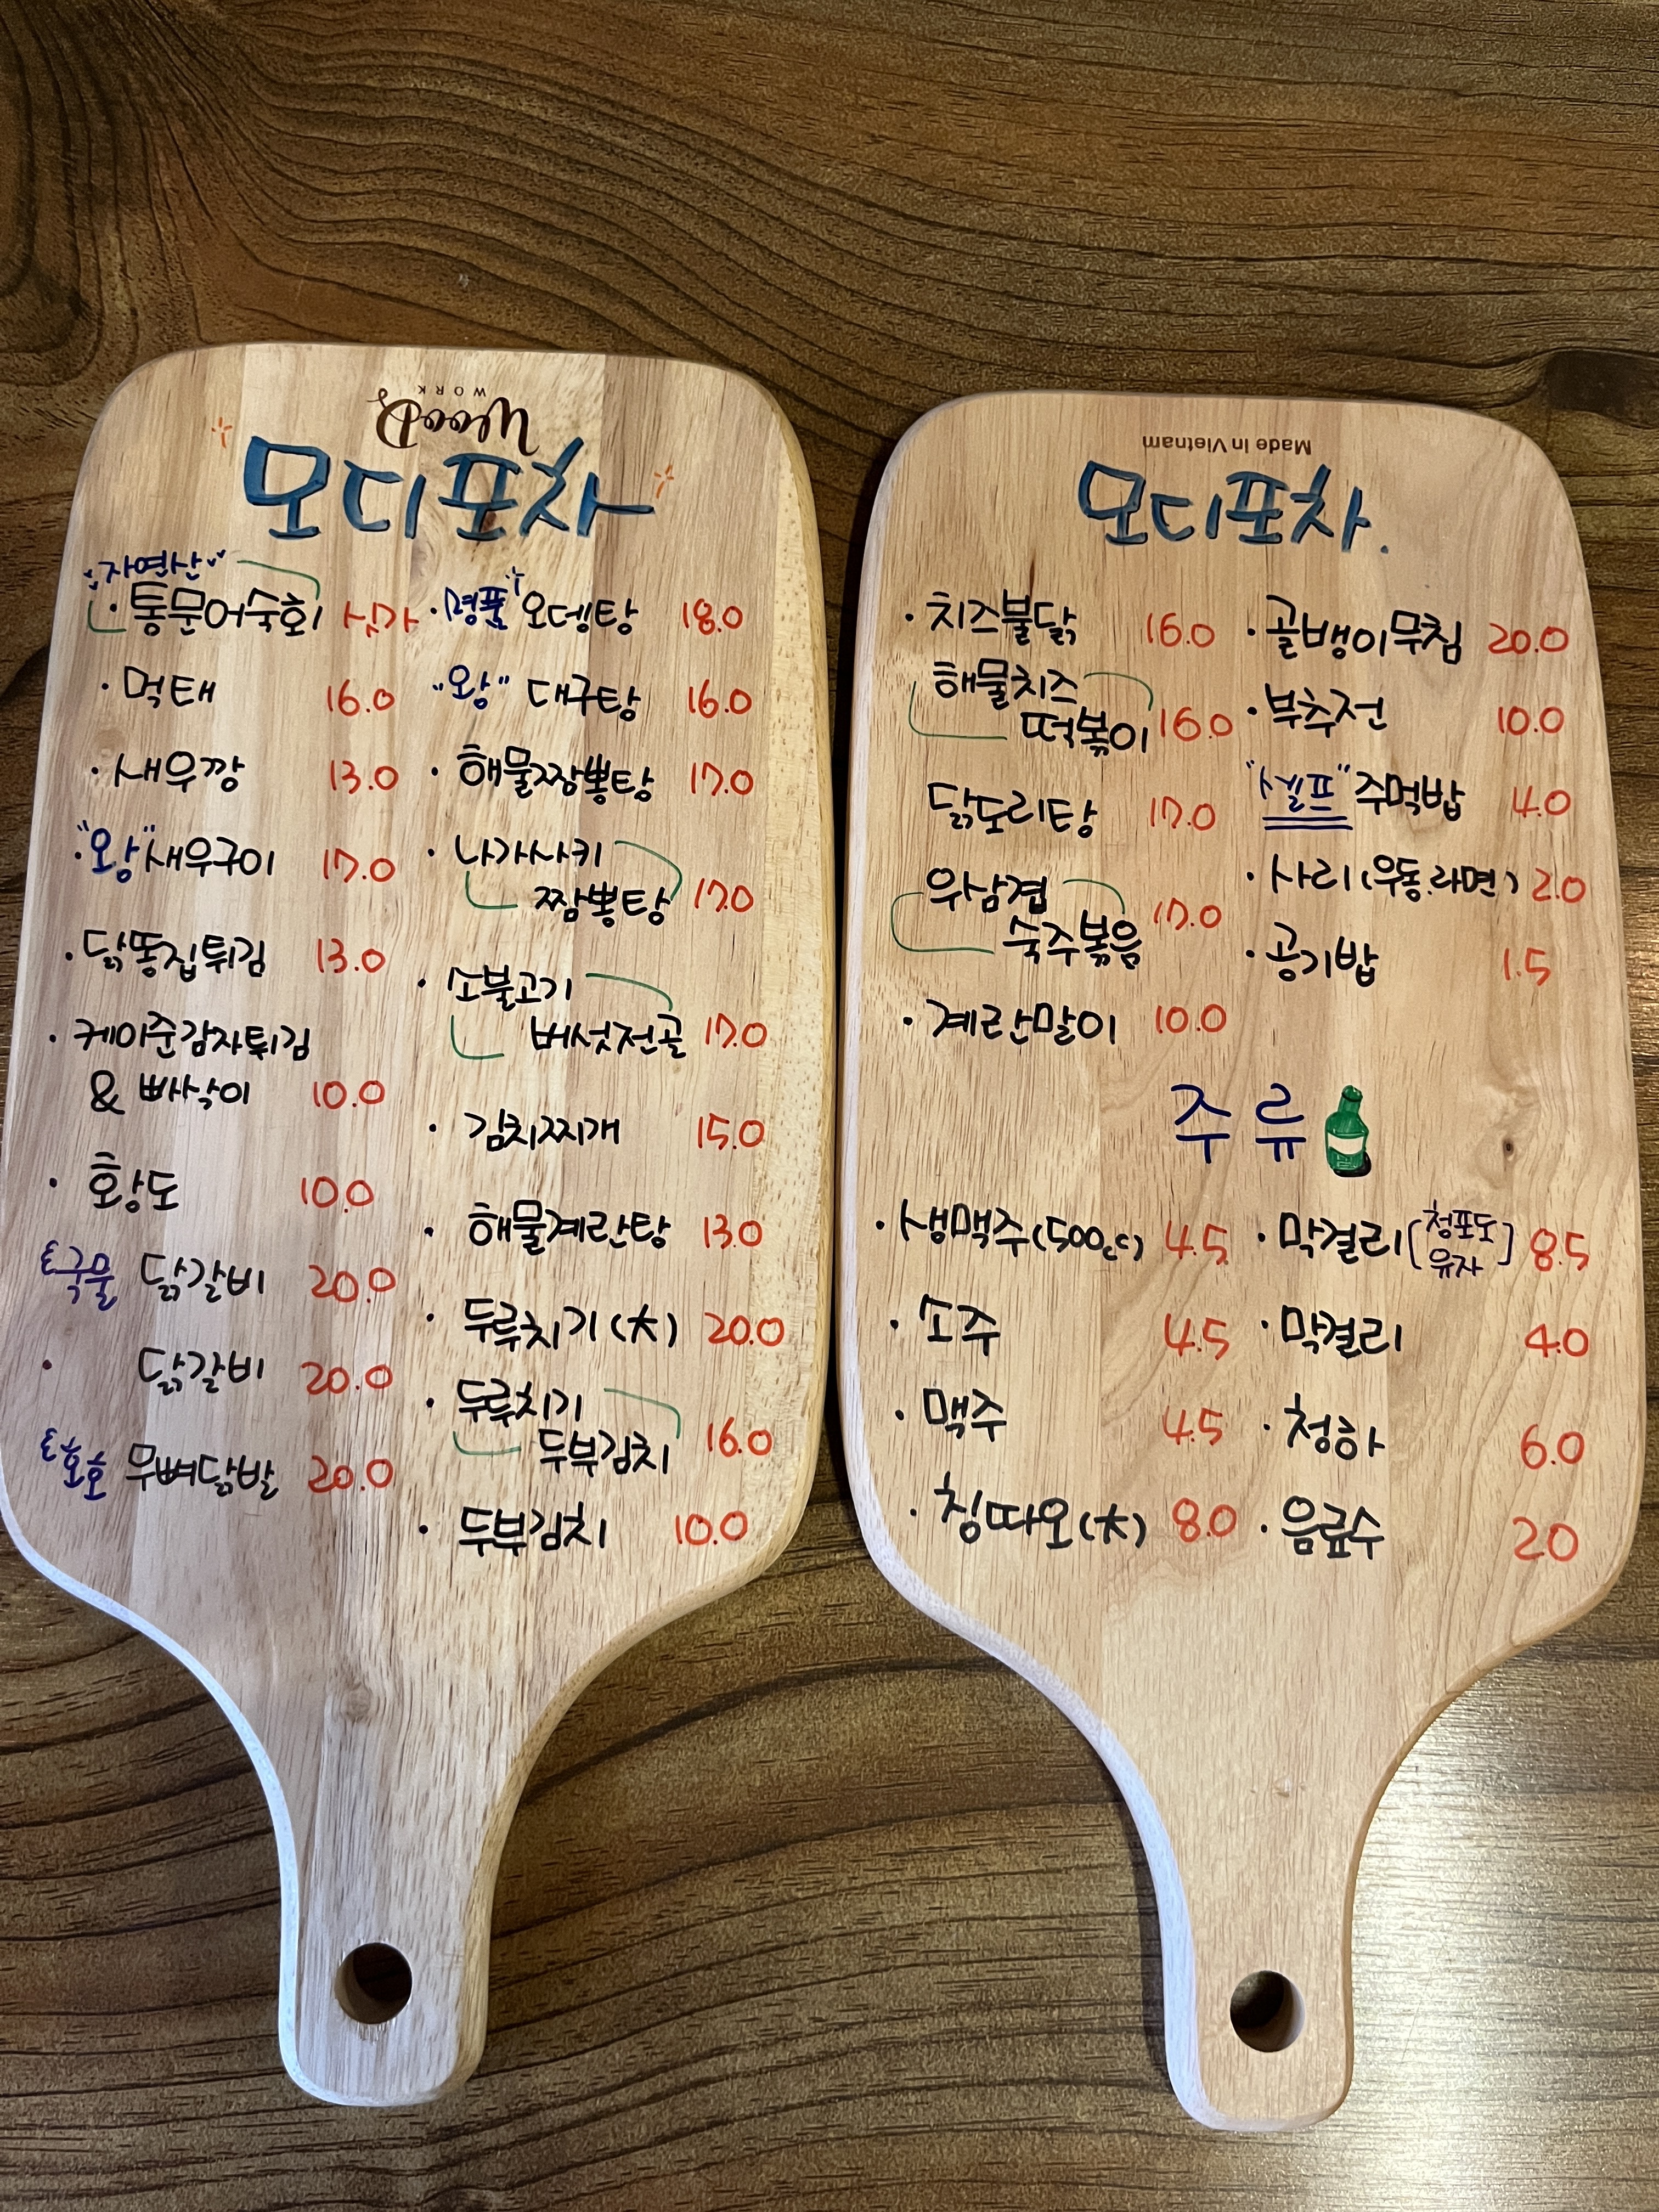 WooDs
WORK
모디포차
"자연산"
· 통문어숙회 싯가
· 먹태 16.0
· 새우깡 13.0
· "왕"새우구이 17.0
· 닭똥집튀김 13.0
· 케이준감자튀김
& 빠삭이 10.0
· 황도 10.0
국물 닭갈비 20.0
· 닭갈비 20.0
호호 무뼈닭발 20.0
· "명품" 오뎅탕 18.0
"왕" 대구탕 16.0
· 해물짬뽕탕 17.0
· 나가사키
짬뽕탕 17.0
· 소불고기
버섯전골 17.0
· 김치찌개 15.0
· 해물계란탕 13.0
· 두루치기(大) 20.0
· 두루치기
두부김치 16.0
· 두부김치 10.0
Made in Vietnam
모디포차.
· 치즈불닭 16.0
해물치즈
떡볶이 16.0
닭도리탕 17.0
우삼겹
숙주볶음 17.0
· 계란말이 10.0
· 골뱅이무침 20.0
· 부추전 10.0
"셀프" 주먹밥 4.0
· 사리(우동.라면) 2.0
· 공기밥 1.5
주류
· 생맥주(500cc) 4.5
· 소주 4.5
· 맥주 4.5
· 칭따오(大) 8.0
· 막걸리[청포도
유자] 8.5
· 막걸리 4.0
· 청하 6.0
· 음료수 20